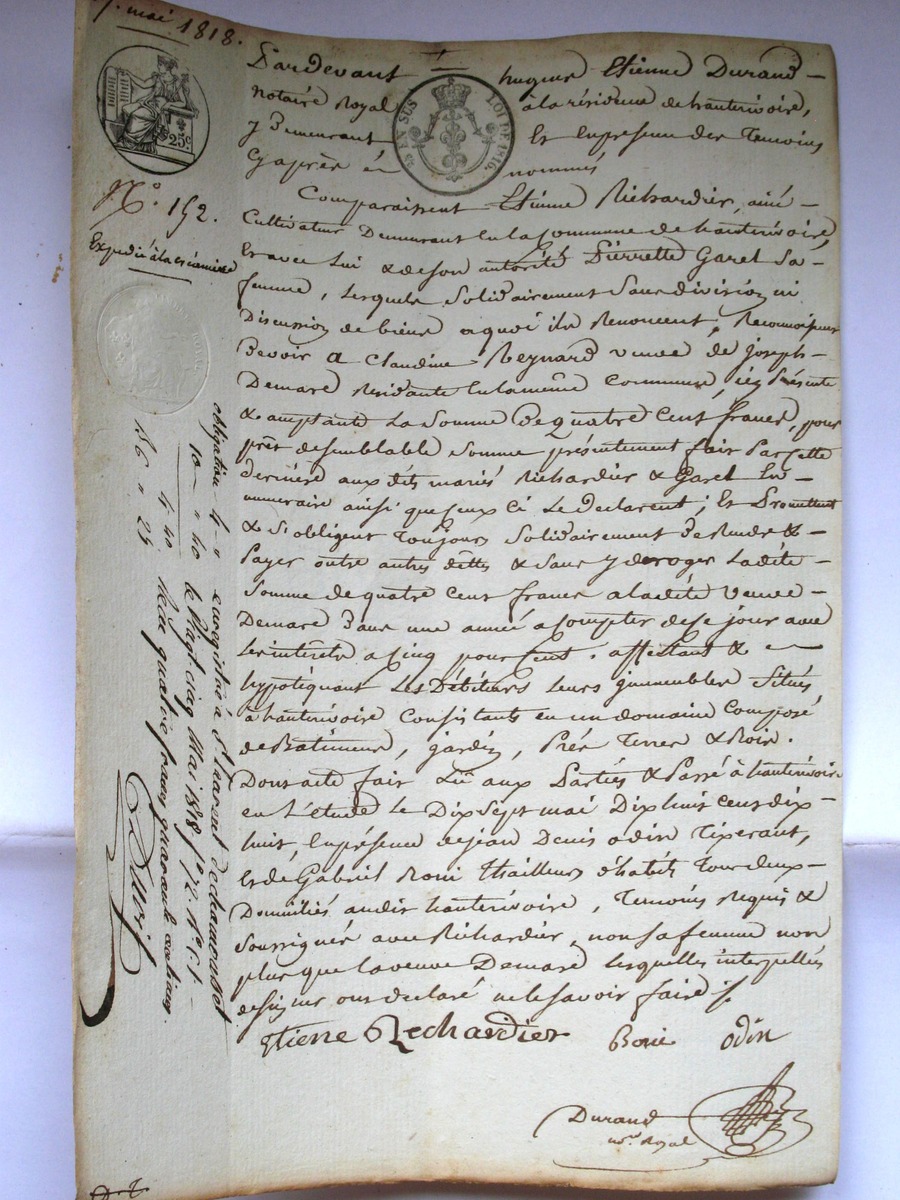 7. mai 1818.
25c
EN SUS LOI DE 1816.
N.° 152.
Expédié à la créancière
Pardevant hugues Etienne Durand
notaire Royal à la résidence de hauterivoire,
y Demeurant Et En présence des Temoins
Cy après nommés
Comparaissent Etienne Richardier, ainé
Cultivateur Demeurant En la Commune de hauterivoire,
Et avec Lui & de son autorité Pierrette Garel Sa
femme, Lesquels Solidairement Sans division ni
Discussion de biens a quoi ils Renoncent, Reconnoissent
Devoir a Claudine Reynard veuve de joseph
Demare Residante En la même Commune, icy Présente
& acceptante La Somme De quatre Cent francs, pour
prêt de semblable Somme présentement fait Par Cette
derniere aux dits mariés Richardier & Garel En
numeraire ainsi que Ceux Ci Le Declarent; Et Promettent
& S'obligent Toujours Solidairement De Rendre &
Payer outre autres dettes & Sans y deroger Ladite
Somme de quatre Cent francs a ladite veuve
Demare Dans une année a Compter de Ce jour avec
Les interets a Cinq pour Cent. affectant &
hypotéquant Les Débiteurs Leurs immeubles Situés
à hauterivoire Consistants en un domaine Composé
de Batiments, jardin, Prés Terres & Bois.
Dont acte fait Lû aux Parties & Passé à hauterivoire
en L'étude Le Dix Sept mai Dix huit cent dix
huit, En présence de jean Denis odin Tixerant,
Et de Gabriel Boni Thailleurs d'habits Tous deux
Domiciliés audit hauterivoire, Temoins Requis &
Soussignés avec Richardier, non Sa femme non
plus que la veuve Demare Lesquelles interpellés
de signer ont declaré ne le Savoir faire
Etiene Rechardier Boni odin
Durand
not. Royal
obligation 4 "
10 " 40
4 40
186 " 25
Enregistré à St Laurent de chamousset
le vingt cinq Mai 1818 f° 72
Reçu quatre francs quarante centimes